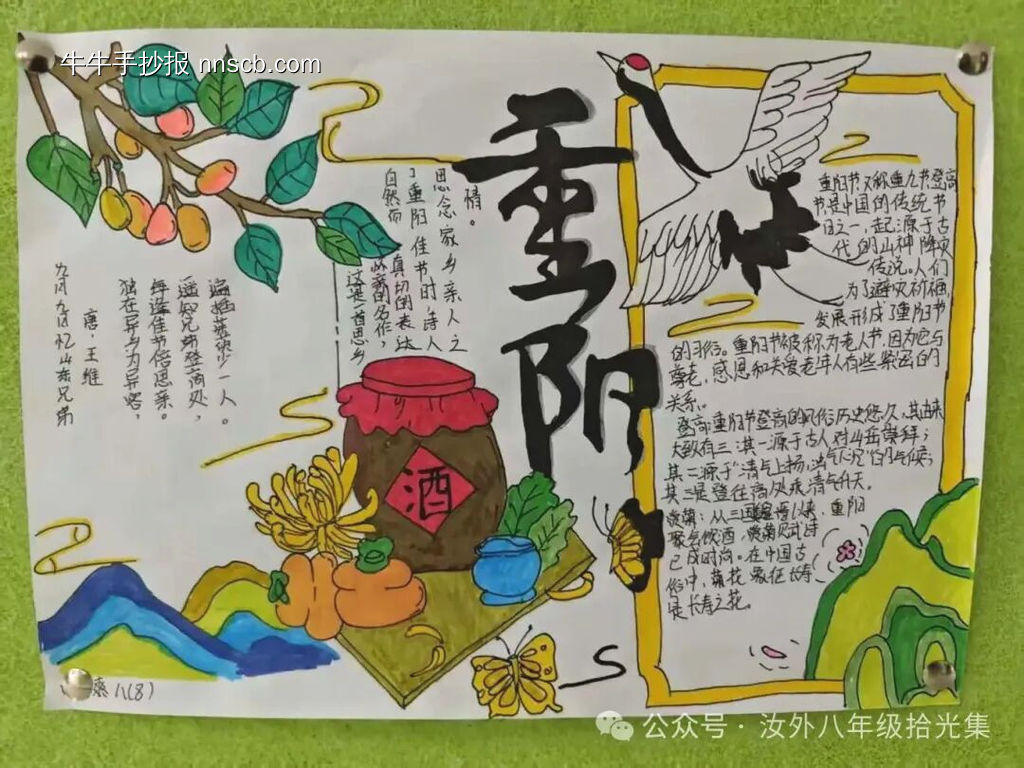 牛牛手抄报 nnscb.com
重阳
九月九日忆山东兄弟
唐·王维
独在异乡为异客,
每逢佳节倍思亲。
遥知兄弟登高处,
遍插茱萸少一人。
这是一首思乡
的名作,
自然而真切的表达
了重阳佳节时,诗人
思念家乡亲人之
情。
酒
重阳节,又称重九节登高
节,是中国的传统节
日之一,起源于古
代的山神降灾
传说。人们
为了避灾祈福,
发展形成了重阳节
的习俗。重阳节被称为老人节,因为它与
尊老,感恩和关爱老年人有些紧密的
关系。
登高:重阳节登高的风俗历史悠久,其由来
大致有三:其一源于古人对山岳崇拜;
其二源于"清气上扬,浊气下沉"的气候;
其三是登往高处乘清气升天。
赏菊:从三国魏晋以来,重阳
聚会饮酒,赏菊赋诗
已成时尚。在中国古
俗中,菊花象征长寿
是长寿之花。
八(8)
公众号·汝外八年级拾光集